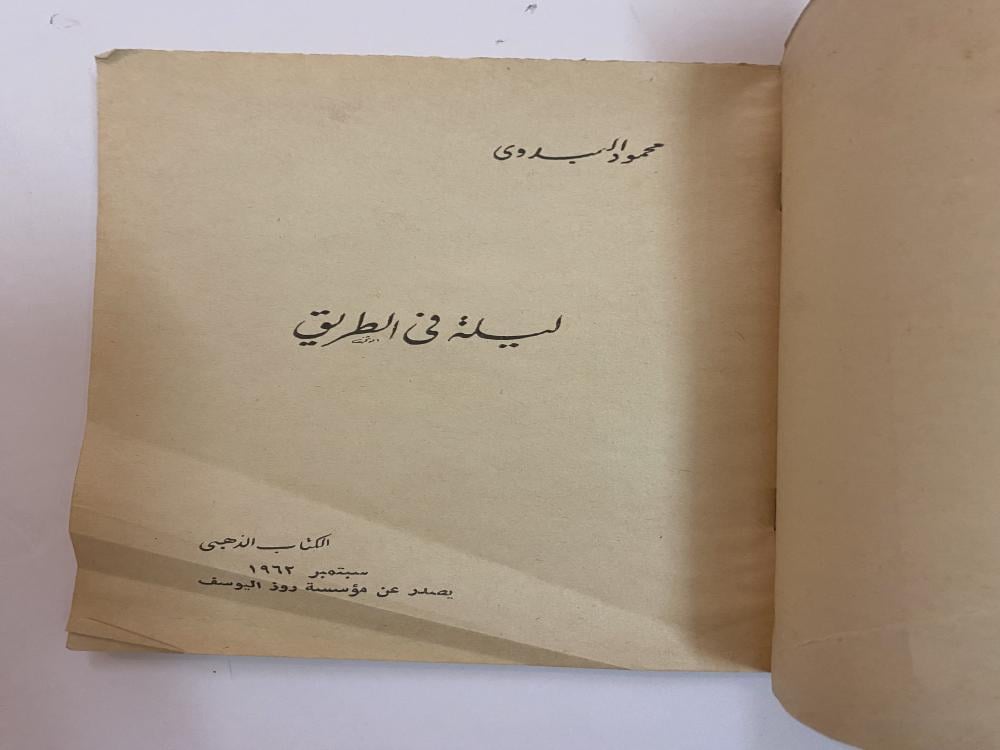 محمود البدوى
ليلة فى الطريق
الكتاب الذهبى
سبتمبر ١٩٦٢
يصدر عن مؤسسة روز اليوسف